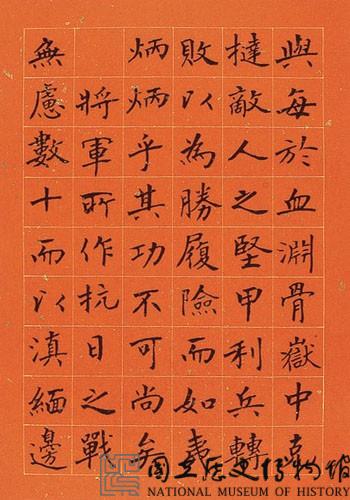 與每於血淵骨嶽中
撻敵人之堅甲利兵轉
敗以為勝履險而如夷
炳炳乎其功不可尚矣
將軍所作抗日之戰
無慮數十而以滇緬邊
國立歷史博物館
NATIONAL MUSEUM OF HISTORY